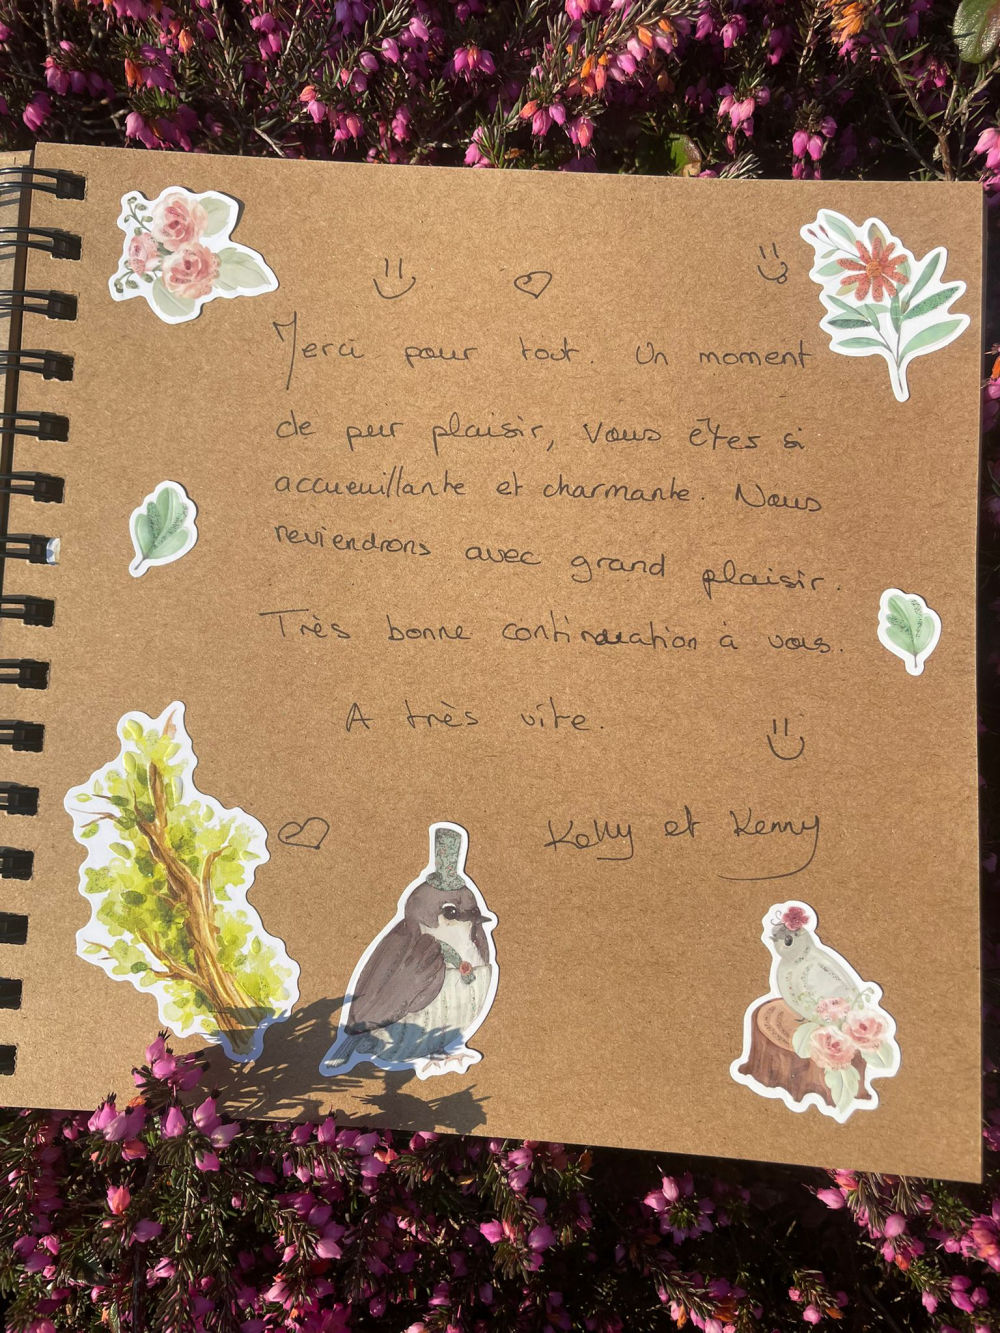 Merci pour tout. Un moment
de pur plaisir, Vous êtes si
accueuillante et charmante. Nous
reviendrons avec grand plaisir.
Très bonne continuation à vous.
A très vite.
Kelly et Kenny